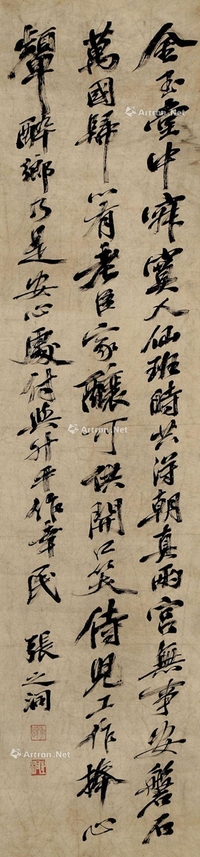 金玉堂中寂寞人仙班時共得朝真兩宮無事安磐石
萬國歸心有老臣家釀可供開口笑侍兒工作捧心
顰醉鄉乃是安心處付與升平作幸民
張之洞
Artron.Net
Artron.Net
Artron.Net
Artron.Net